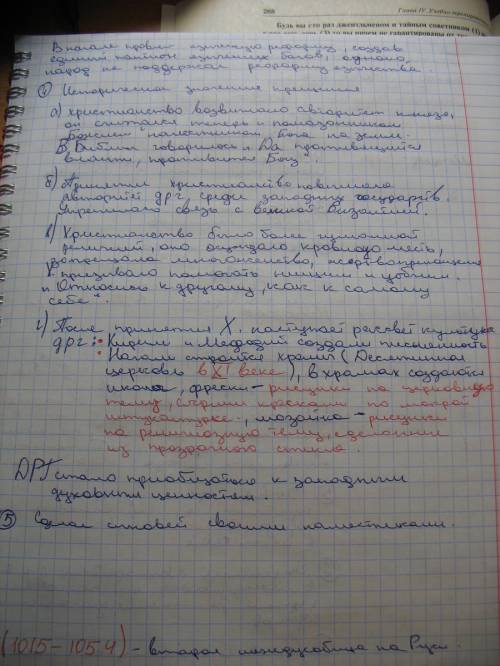 268 Глава IV. Учебно-тренировочные
Будь вы сто раз джентльменом и тайным советником (1) и
В начале провёл языческую реформу, создав
единый пантеон языческих богов, однако
народ не поддержал реформу язычества.
④ Историческое значение крещения
а) Христианство возвышало авторитет князя,
он считался теперь и помазанником
Божьем "наместником Бога на земле.
В Библии говорилось "Да противящийся
власти, противится Богу".
б) Принятие христианства повысило
авторитет ДРГ среди западных государств.
Укрепляло связь с Византией.
в) Христианство было более гуманной
религией, оно осуждало кровную месть,
запрещала многоженство, жертвоприношения
призывало помогать нищим и убогим.
и Относись к другому, как к самому
себе".
г) После принятия Х. наступает рассвет культуры
ДРГ: Кирилл и Мефодий создали письменность
Начали строится храмы (Десятинная
церковь в XI веке), в храмах создаются
иконы, фрески - рисунки на церковную
тему, красками по мокрой
штукатурке, мозайка - рисунки
на религиозную тему, сделанные
из прозрачного стекла.
ДРГ стало приобщаться к западным
духовным ценностям.
⑤ Сделал сыновей своими наместниками.
(1015-1054) - вторая междусобица на Руси.